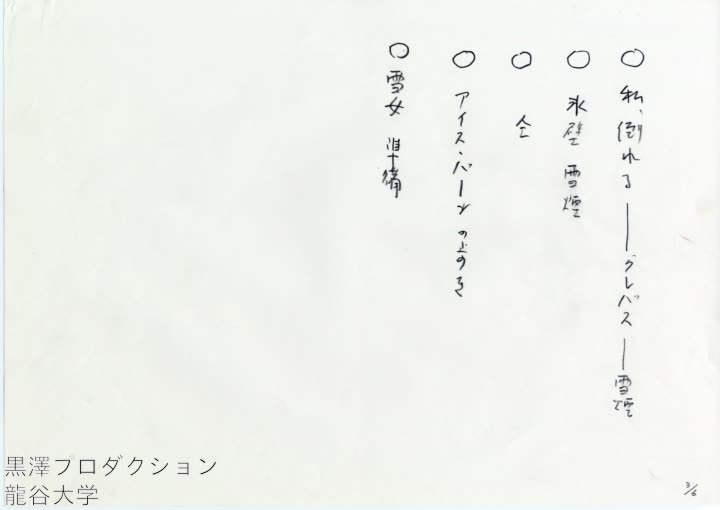 ○ 私、倒れる ── クレバス ── 雪煙
○ 氷壁 雪煙
○ 仝
○ アイス・バーン の上の
○ 雪女 準備
3/6
黒澤プロダクション
龍谷大学